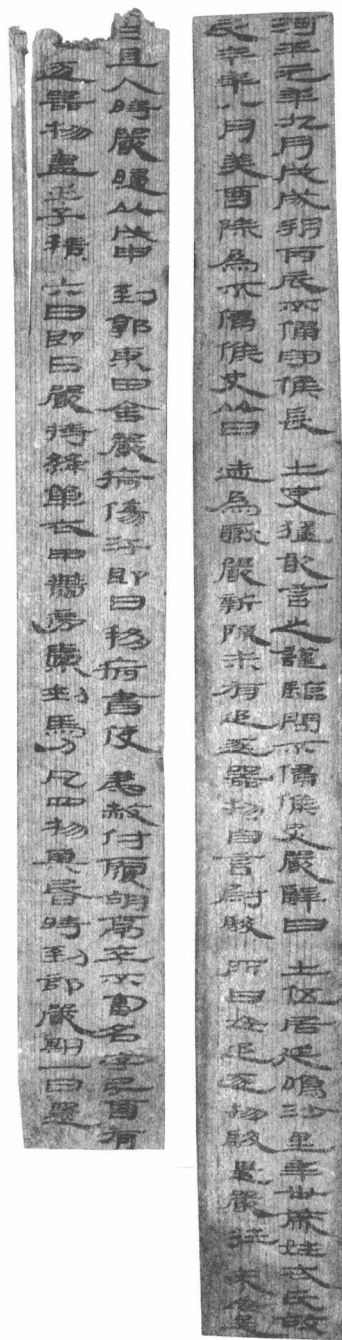 河平元年九月戊戌朔丙辰不侵守候長士吏猛敢言之謹驗問不侵候史嚴辭曰士伍居延鳴沙里年卅歲姓衣氏故
民今年八月癸酉除為不侵候史以日迹為職嚴新除未有追逐器物自言尉駿所曰毋追逐物駿遣嚴往來毋過
日且入時嚴歸以戊申到郭東田舍嚴病傷汗即日移病書使弟赦付覆胡亭卒不審名字己酉有
追逐器物盡壬子積六日即日嚴持絳單衣甲帶旁橐刺馬刀凡四物其昏時到部嚴期一日還